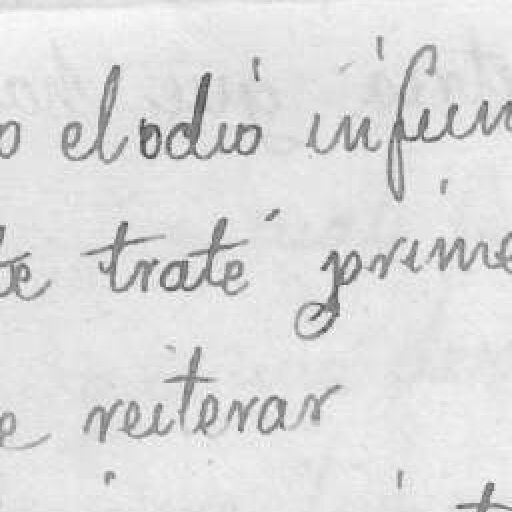 o el odio infun
te traté prime
e reiterar